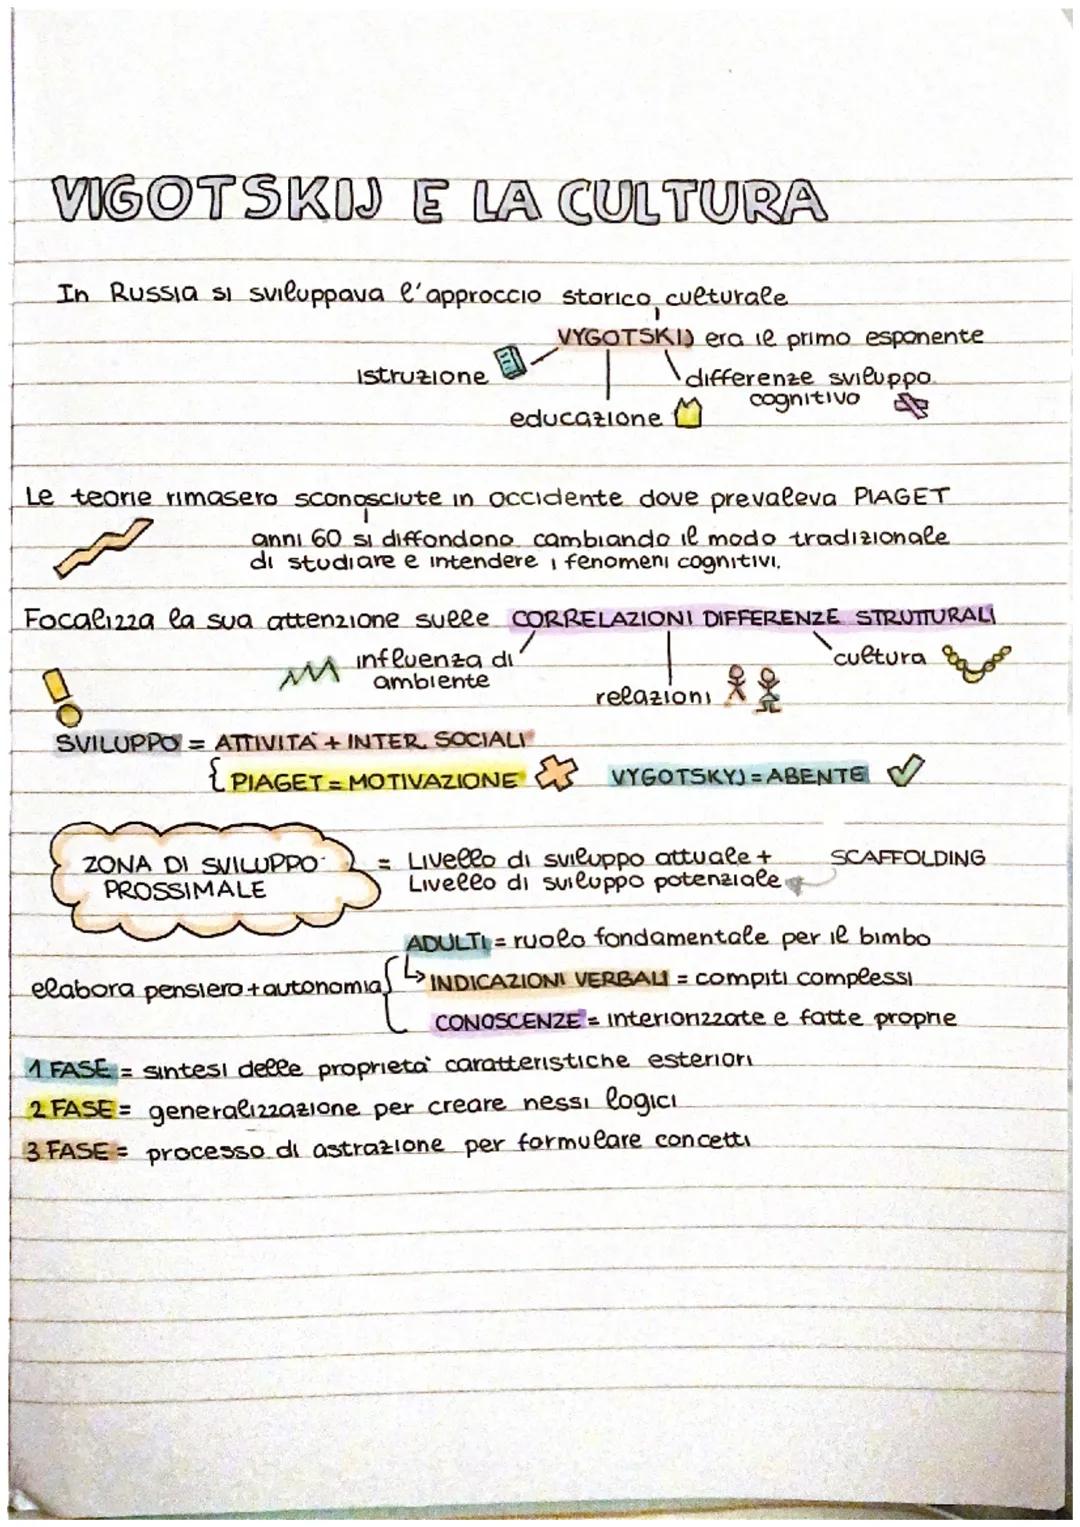 VIGOTSKIJ E LA CULTURA
In Russia si sviluppava l'approccio storico culturale
VYGOTSKIJ era il primo esponente
istruzione
differenze sviluppo
cognitivo
educazione
Le teorie rimasero sconosciute in occidente dove prevaleva PIAGET
anni 60 si diffondono cambiando il modo tradizionale
di studiare e intendere i fenomeni cognitivi.
Focalizza la sua attenzione sulle CORRELAZIONI DIFFERENZE STRUTTURALI
influenza di
ambiente
cultura
relazioni
SVILUPPO = ATTIVITÀ + INTER. SOCIALI
PIAGET = MOTIVAZIONE VYGOTSKYJ = ABENTE
ZONA DI SVILUPPO
PROSSIMALE
= Livello di sviluppo attuale + SCAFFOLDING
Livello di sviluppo potenziale
ADULTI = ruolo fondamentale per il bimbo
elabora pensiero + autonomia
INDICAZIONI VERBALI = compiti complessi
CONOSCENZE = interiorizzate e fatte proprie
1 FASE = sintesi delle proprietà caratteristiche esteriori
2 FASE = generalizzazione per creare nessi logici
3 FASE = processo di astrazione per formulare concetti